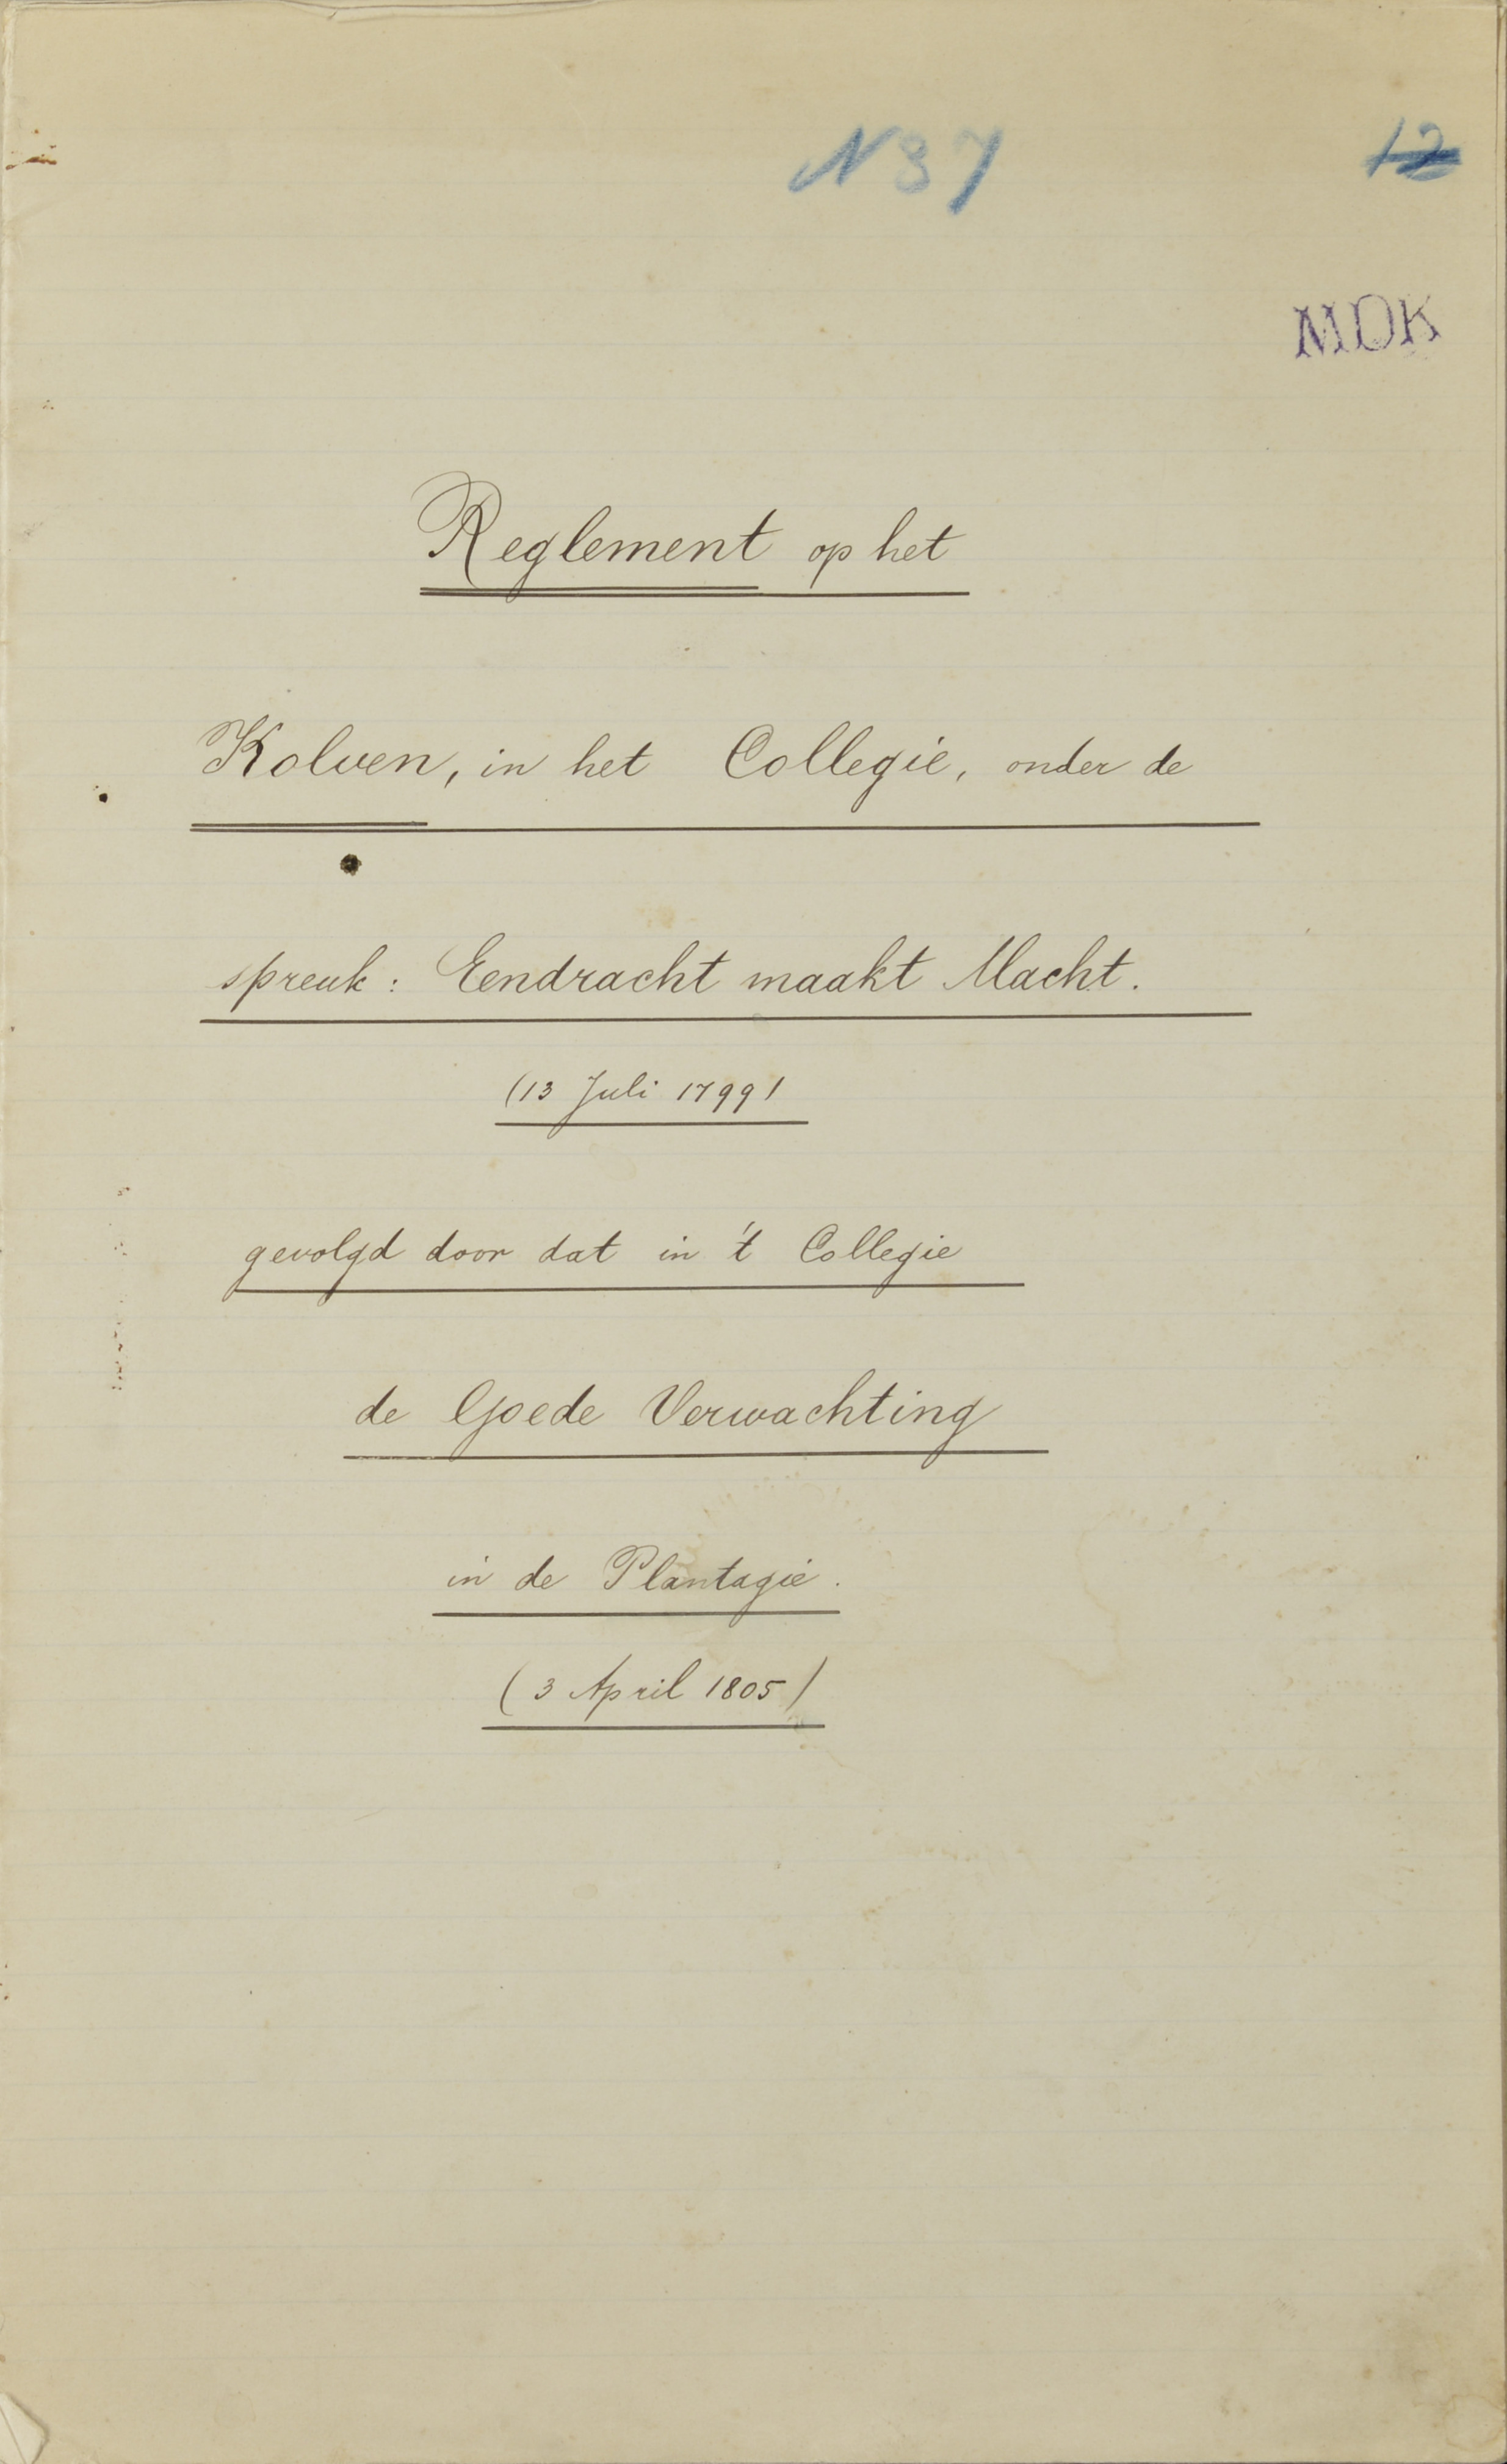 N 37
12
MDK
Reglement op het
Kolven, in het Collegie, onder de
spreuk: Eendracht maakt Macht.
(13 Juli 1799)
gevolgd door dat in 't Collegie
de Goede Verwachting
in de Plantagie.
(3 April 1805)